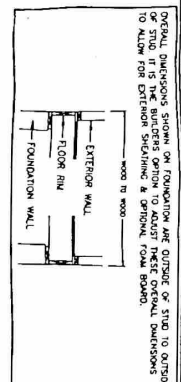 OVERALL DIMENSIONS SHOWN ON FOUNDATION ARE OUTSIDE OF STUD TO OUTSID
OF STUD. IT IS THE BUILDERS OPTION TO ADJUST THESE OVERALL DIMENSIONS
TO ALLOW FOR EXTERIOR SHEATHING & OPTIONAL FOAM BOARD.
WOOD TO WOOD
EXTERIOR WALL
FLOOR RIM
FOUNDATION WALL